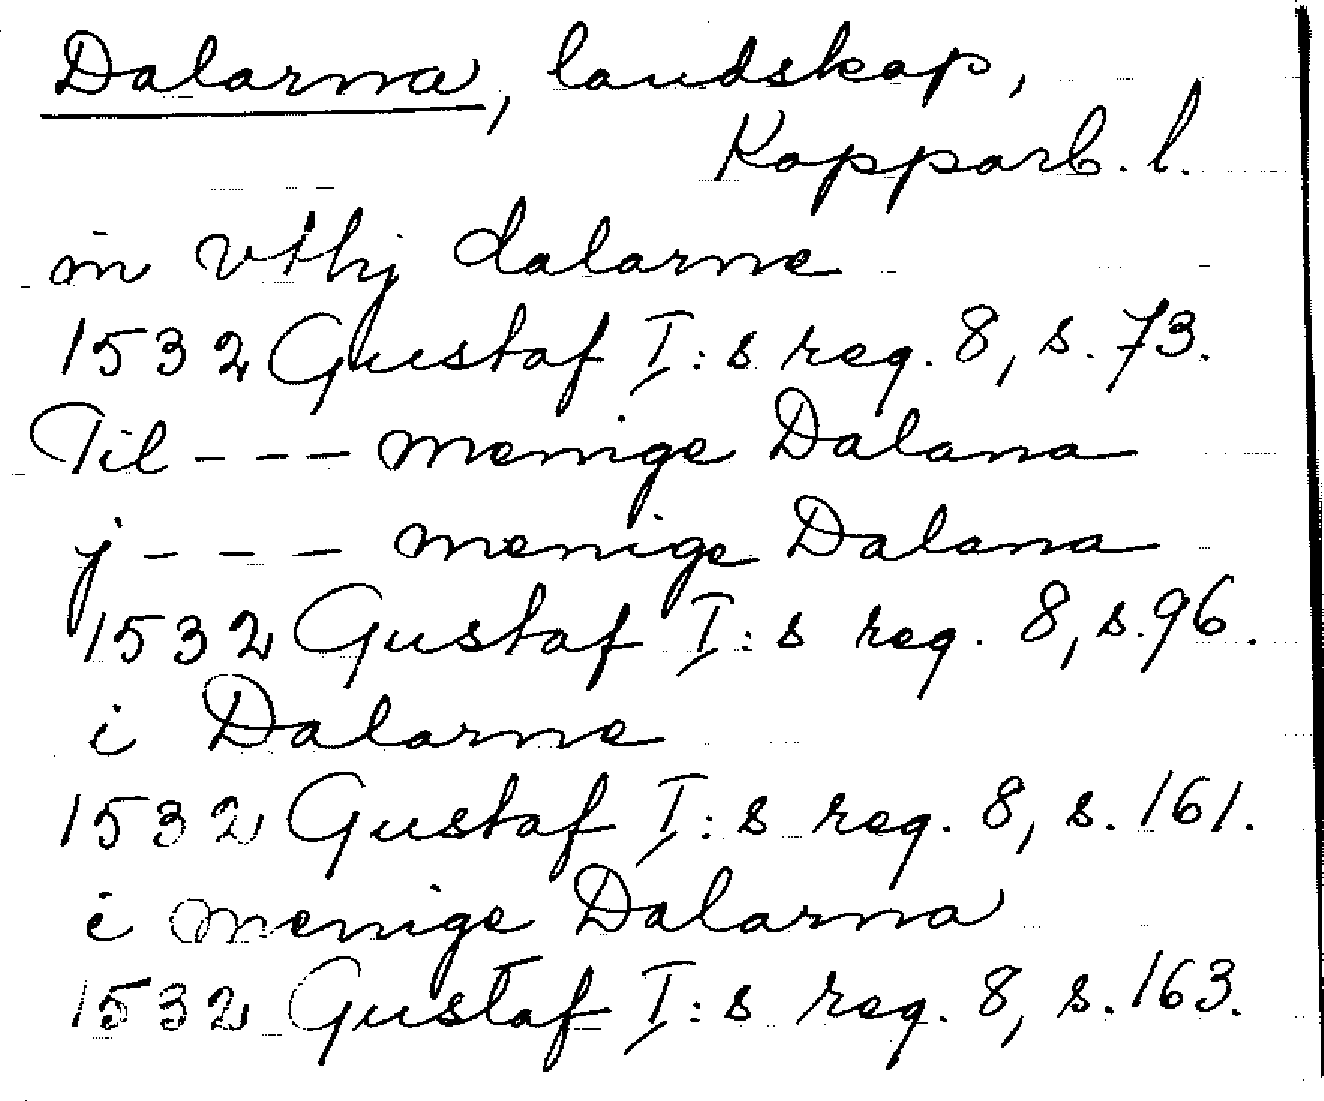 Dalarna, landskap,
Kopparb. l.
in vthj dalarne
1532 Gustaf I:s reg. 8, s. 73.
Til - - - menige Dalana
j - - - menige Dalana
1532 Gustaf I:s reg. 8, s. 96.
i Dalarne
1532 Gustaf I:s reg. 8, s. 161.
i menige Dalarna
1532 Gustaf I:s reg. 8, s. 163.